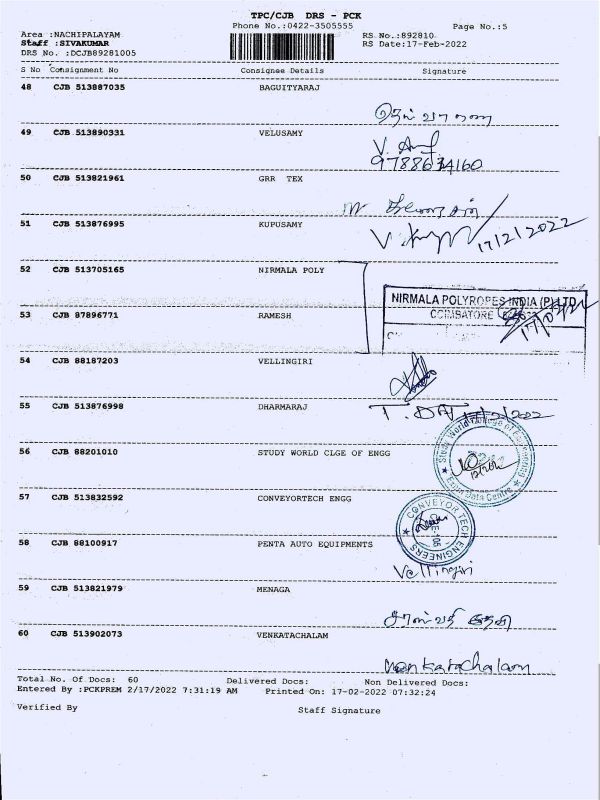 TPC/CJB DRS - PCK
Phone No.:0422-3505555
Page No.:5
Area :NACHIPALAYAM
RS No.:892810
Staff :SIVAKUMAR
RS Date:17-Feb-2022
DRS No. :DCJB89281005
S No Consignment No Consignee Details Signature
48 CJB 513887035 BAGUITYARAJ
49 CJB 513890331 VELUSAMY
9788634160
50 CJB 513821961 GRR TEX
51 CJB 513876995 KUPUSAMY
17/2/2022
52 CJB 513705165 NIRMALA POLY
NIRMALA POLYROPES INDIA (P) LTD
COIMBATORE
53 CJB 87896771 RAMESH
54 CJB 88187203 VELLINGIRI
55 CJB 513876998 DHARMARAJ
56 CJB 88201010 STUDY WORLD CLGE OF ENGG
Study World College of Engineering
57 CJB 513832592 CONVEYORTECH ENGG
CONVEYOR TECH ENGINEERS
58 CJB 88100917 PENTA AUTO EQUIPMENTS
Vellingiri
59 CJB 513821979 MENAGA
60 CJB 513902073 VENKATACHALAM
Venkatachalam
Total No. Of Docs: 60 Delivered Docs: Non Delivered Docs:
Entered By :PCKPREM 2/17/2022 7:31:19 AM Printed On: 17-02-2022 07:32:24
Verified By Staff Signature